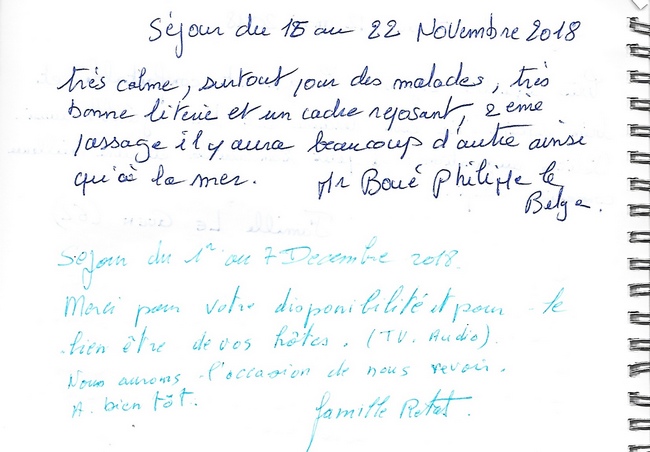 Séjour du 15 au 22 Novembre 2018
très calme, surtout pour des malades, très
bonne literie et un cadre reposant, 2 ème
passage il y aura beaucoup d'autre ainsi
qu'à la mer. Mr Boué Philippe le
Belge.
Séjour du 1er au 7 Decembre 2018.
Merci pour votre disponibilité et pour le
bien être de vos hôtes. (TV. Audio).
Nous aurons l'occasion de nous revoir.
A. bientôt. famille